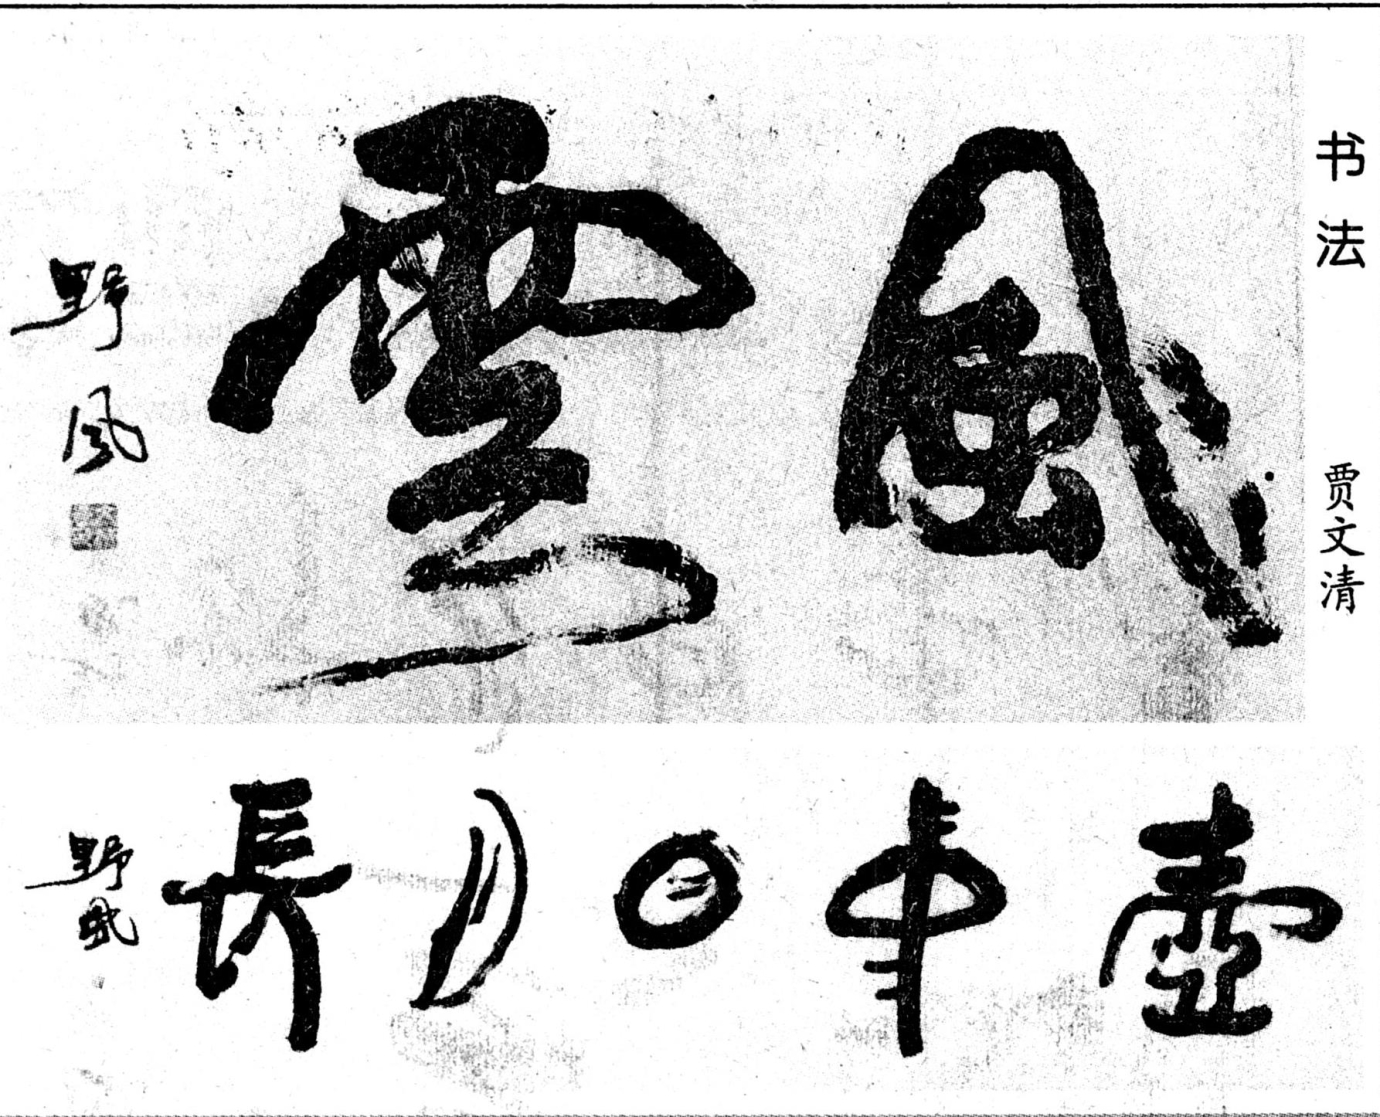 书法
贾文清
風雲
野風
壺中日月長
野風